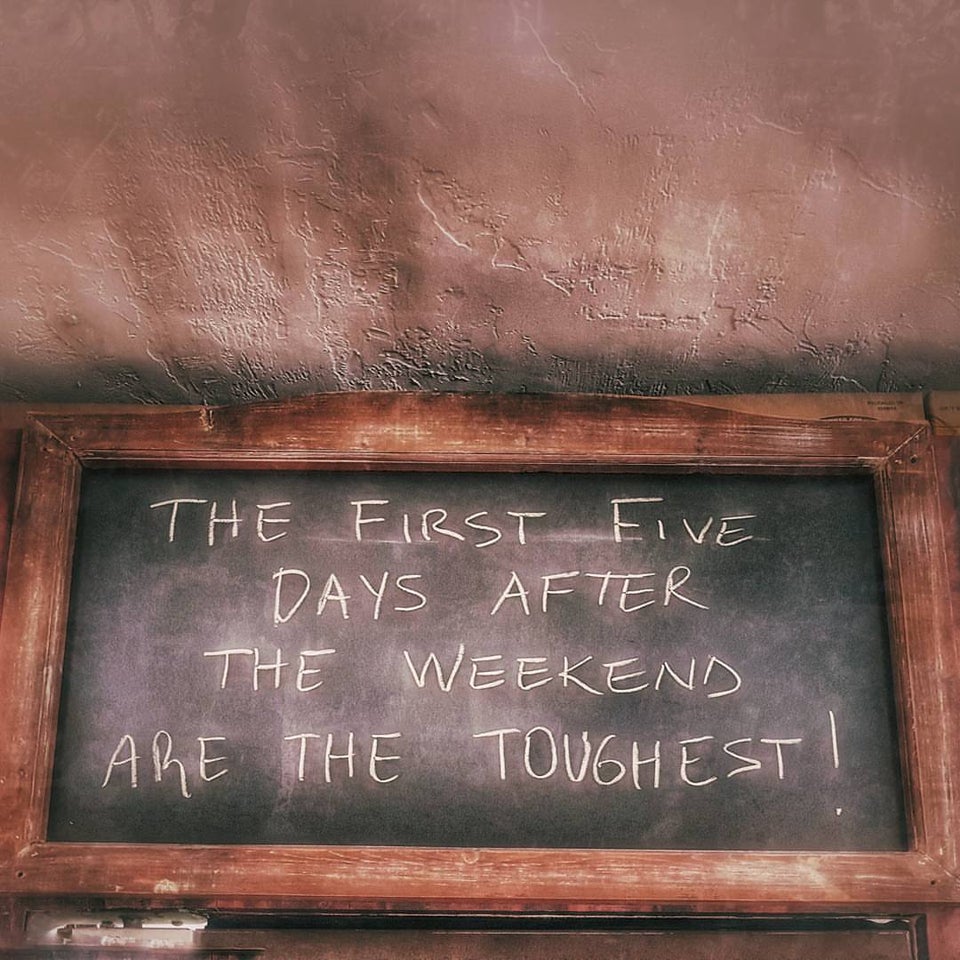 THE FIRST FIVE
DAYS AFTER
THE WEEKEND
ARE THE TOUGHEST!